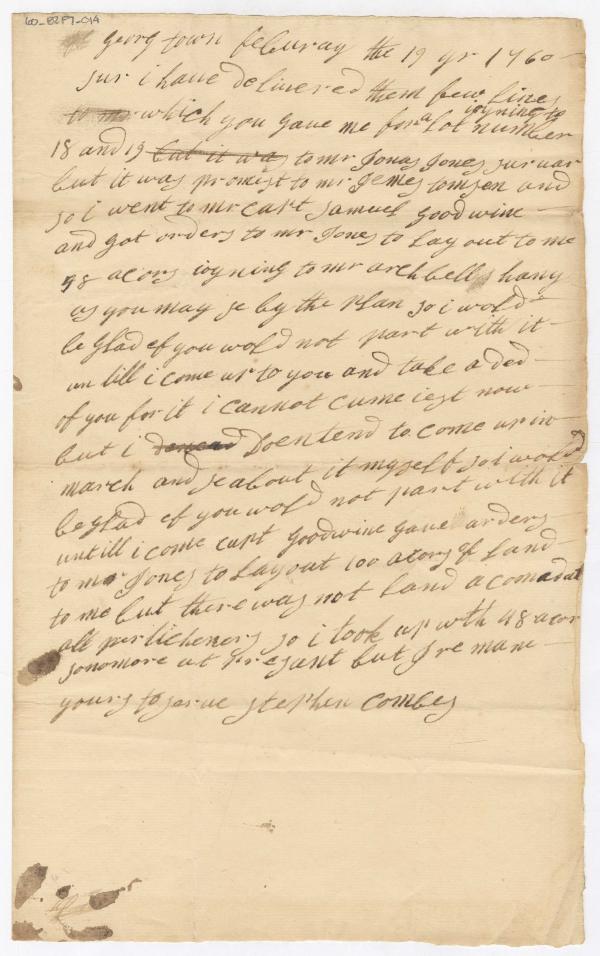 60-82F7-014
georg town feburay the 19 yr 1760
sur i have delivered them few lines
to mr which you gave me for a Lot number ioyning to
18 and 19 but it was to mr Jonas Jones survar
but it was promist to mr Jemes tomsen and
so i went to mr capt samuel goodwine
and got orders to mr Jones to Lay out to me
98 acors ioyning to mr archbell shany
as you may se by the plan so i wold
be glad ef you wold not part with it
un till i come up to you and take a ded
of you for it i cannot cume iest now
but i Doentend to come up in
march and se about it myself so i wold
be glad ef you wold not part with it
untill i come capt goodwine gave arders
to mr Jones to Layout 100 acors of Land
to me but there was not Land acomadat
all perticheners so i took up with 98 acor
sonomore at presant but I remane
yours to sarve stephen combes